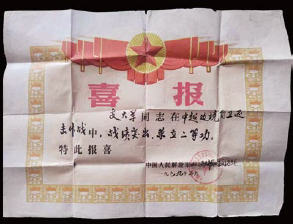 喜报
文大军同志在中越边境自卫还
击作战中，战绩突出，荣立三等功。
特此报喜
中国人民解放军
一九七九年